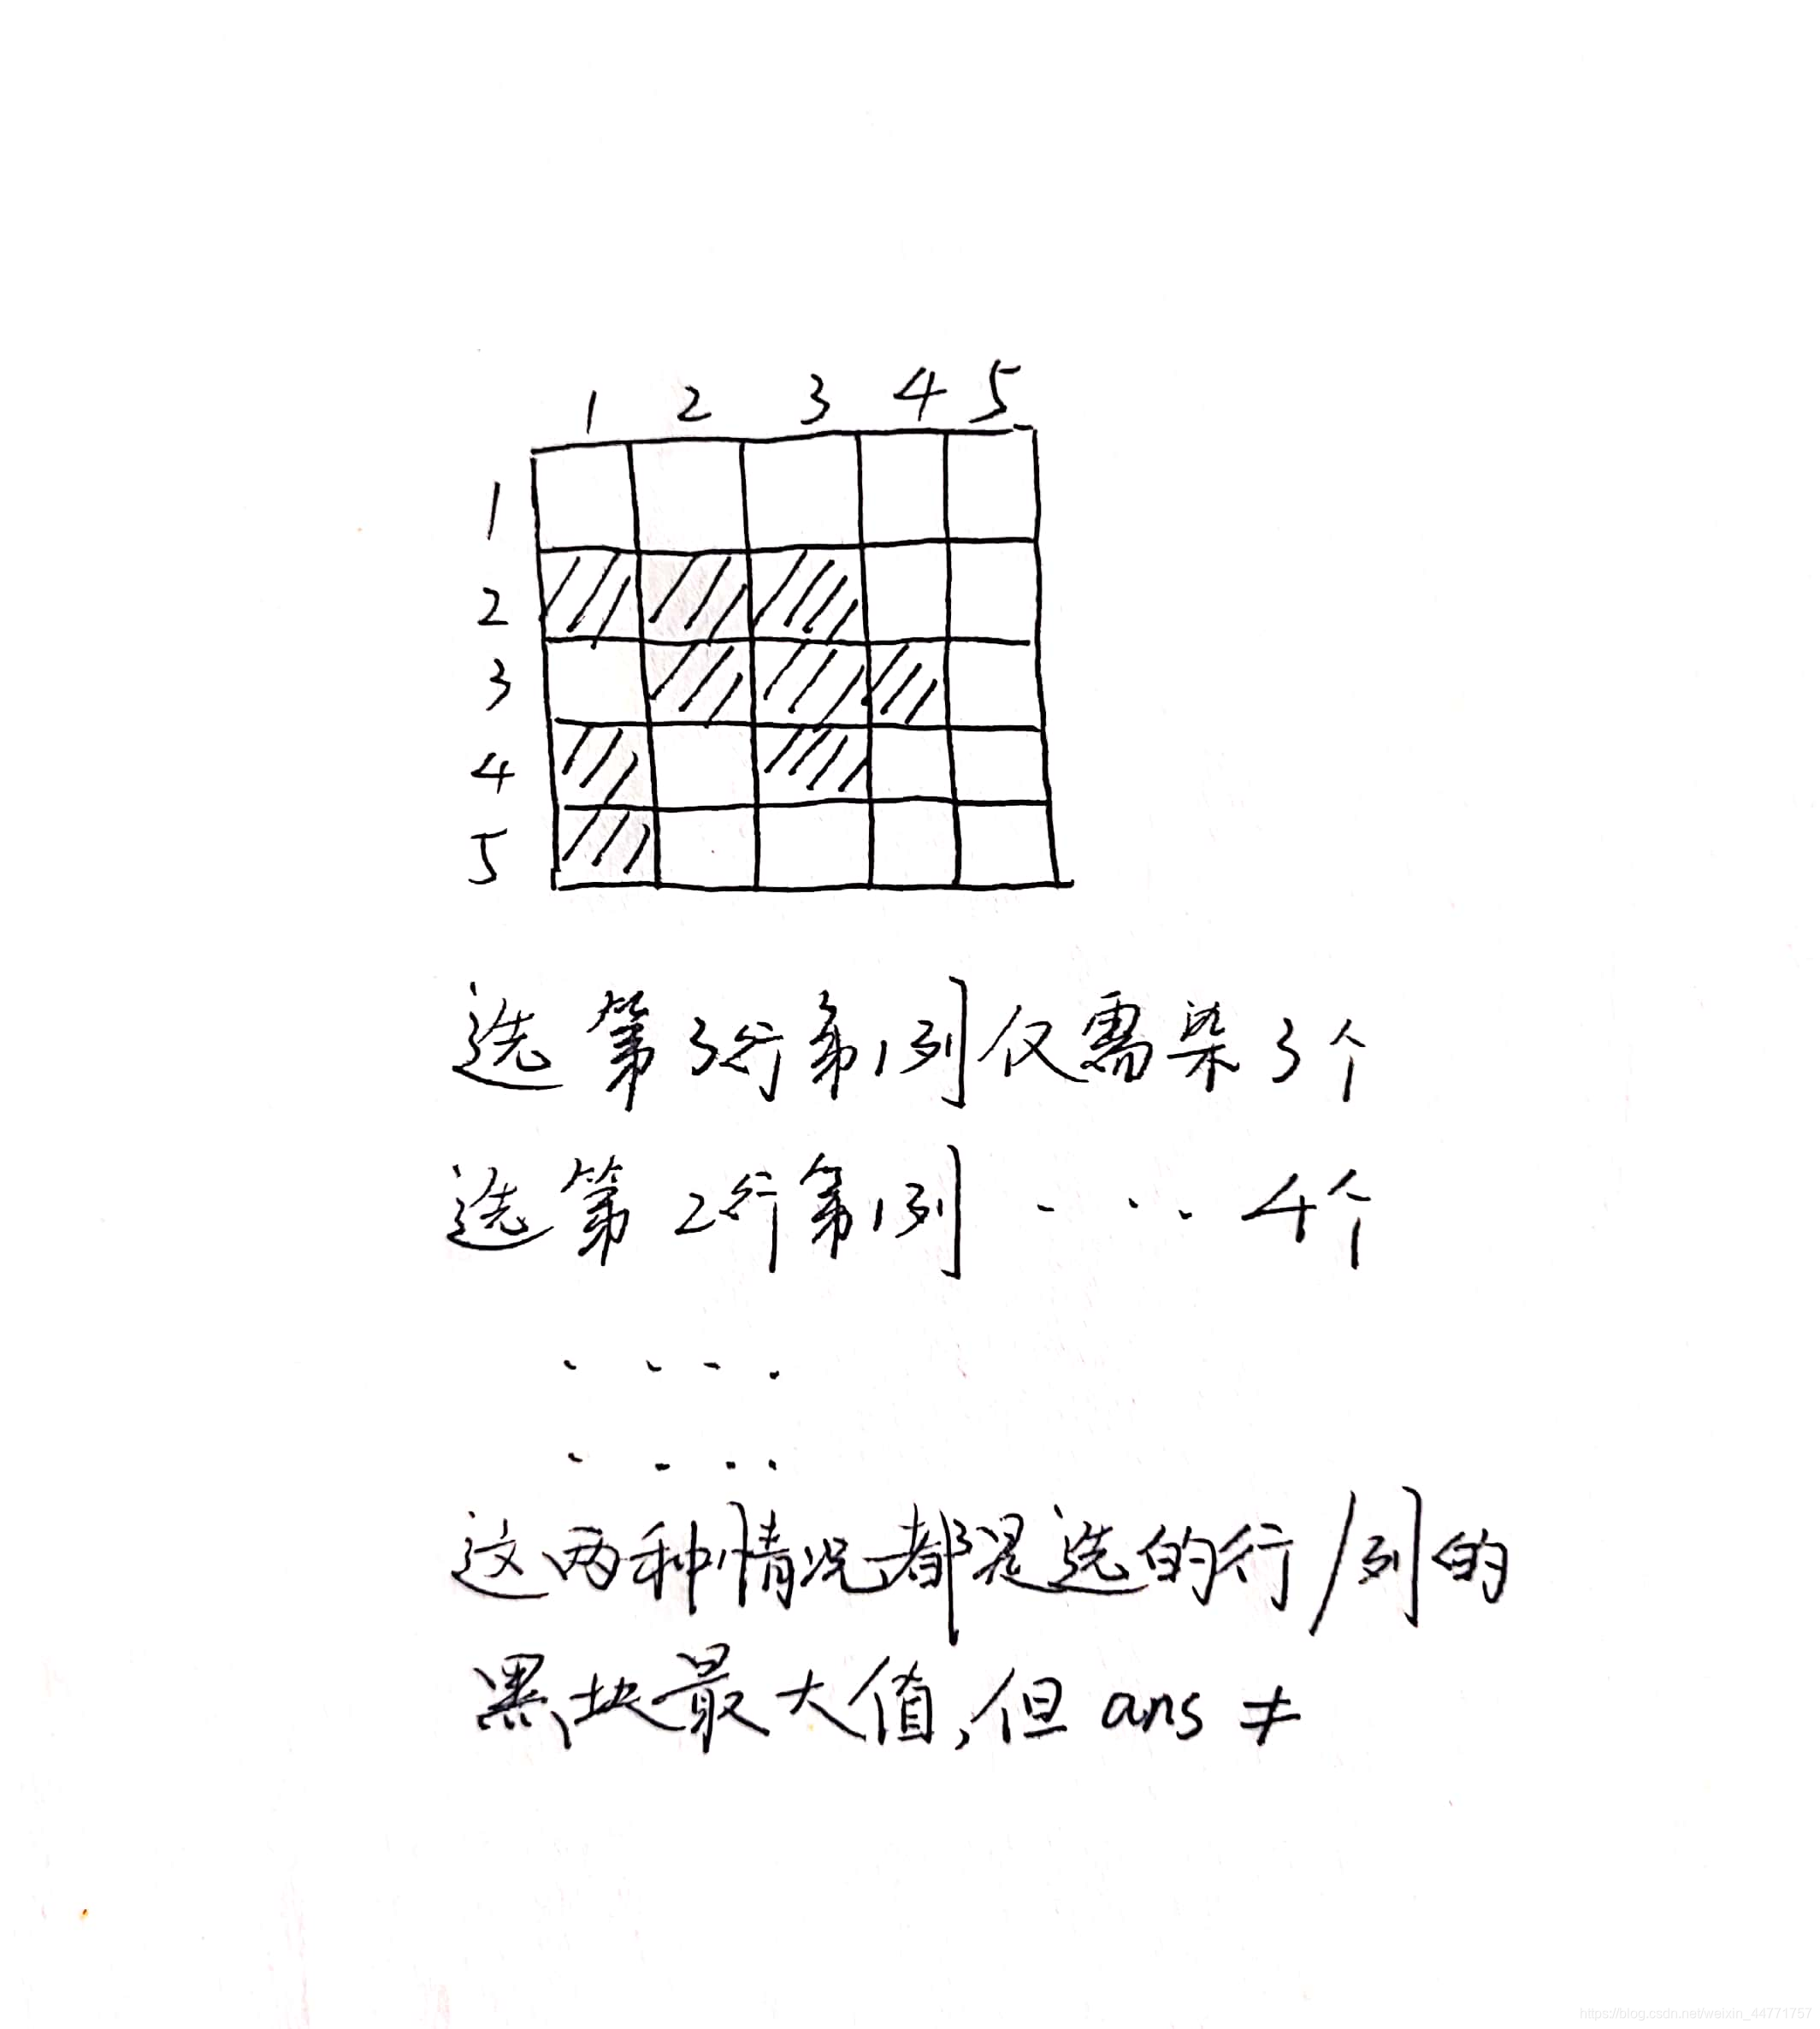 1 2 3 4 5
1
2
3
4
5
选第3行第1列仅需染3个
选第2行第1列 ···· 4个
····
····
这两种情况都是选的行/列的
黑块最大值,但 ans ≠
https://blog.csdn.net/weixin_44771757